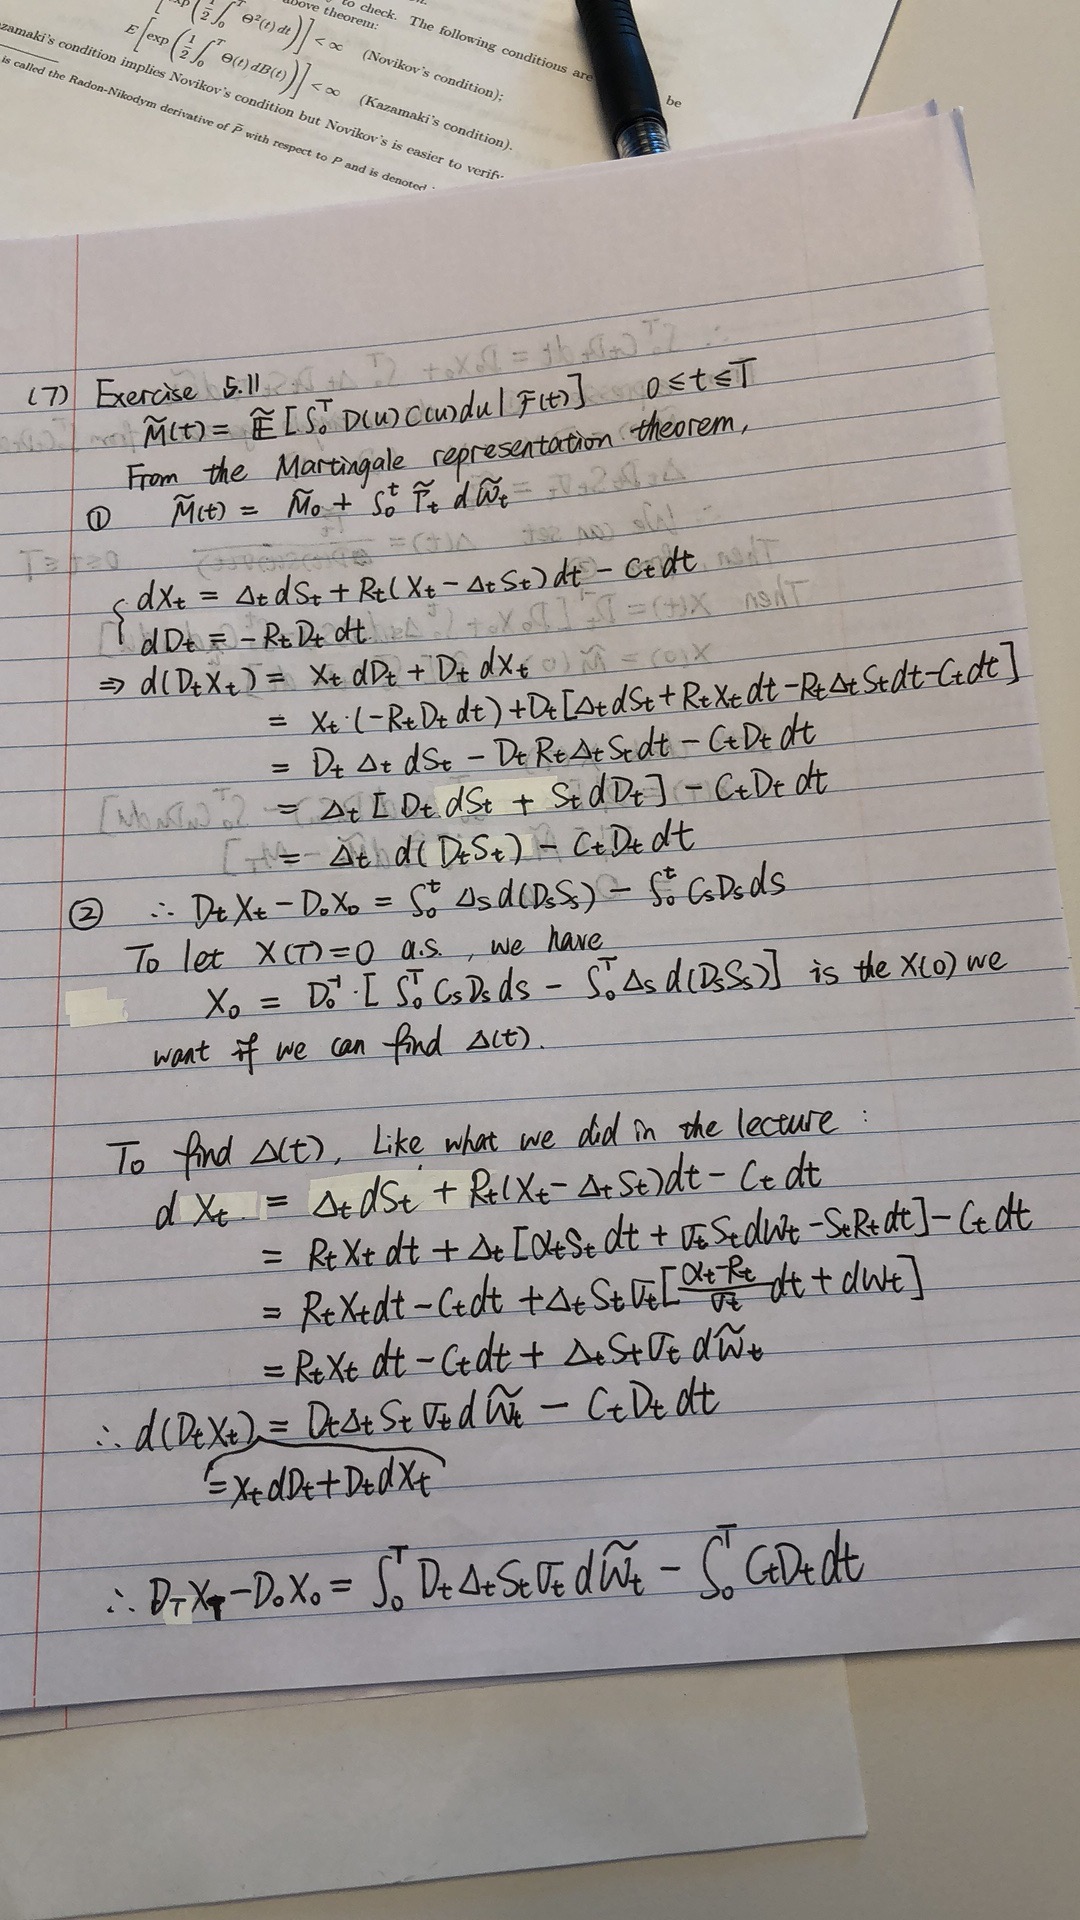 to check. The following conditions are
above theorem:
exp(½∫₀ᵀ Θ²(t)dt)] < ∞ (Novikov's condition);
be
E[exp(½∫₀ᵀ Θ(t)dB(t))] < ∞ (Kazamaki's condition).
azamaki's condition implies Novikov's condition but Novikov's is easier to verify
is called the Radon-Nikodym derivative of P̃ with respect to P and is denoted
(7) Exercise 5.11
M̃(t) = Ẽ[∫₀ᵀ D(u)C(u)du | F(t)] 0≤t≤T
From the Martingale representation theorem,
① M̃(t) = M̃₀ + ∫₀ᵗ Γ̃t dW̃t
{ dXt = Δt dSt + Rt(Xt − ΔtSt)dt − Ct dt
dDt = −RtDt dt
⇒ d(DtXt) = Xt dDt + Dt dXt
= Xt·(−RtDt dt) + Dt[ΔtdSt + RtXtdt − RtΔtStdt − Ctdt]
= DtΔt dSt − DtRtΔtStdt − CtDt dt
= Δt[Dt dSt + St dDt] − CtDt dt
= Δt d(DtSt) − CtDt dt
② ∴ DtXt − D₀X₀ = ∫₀ᵗ Δs d(DsSs) − ∫₀ᵗ CsDs ds
To let X(T)=0 a.s., we have
X₀ = D₀⁻¹·[∫₀ᵀ CsDs ds − ∫₀ᵀ Δs d(DsSs)] is the X(0) we
want if we can find Δ(t).
To find Δ(t), Like what we did in the lecture :
d Xt = ΔtdSt + Rt(Xt − ΔtSt)dt − Ct dt
= RtXt dt + Δt[αtSt dt + σtStdWt − StRtdt] − Ct dt
= RtXtdt − Ctdt + ΔtStσt[(αt−Rt)/σt dt + dWt]
= RtXt dt − Ctdt + ΔtStσt dW̃t
∴ d(DtXt) = DtΔtStσt dW̃t − CtDt dt
= XtdDt + DtdXt
∴ DTXT − D₀X₀ = ∫₀ᵀ DtΔtStσt dW̃t − ∫₀ᵀ CtDt dt